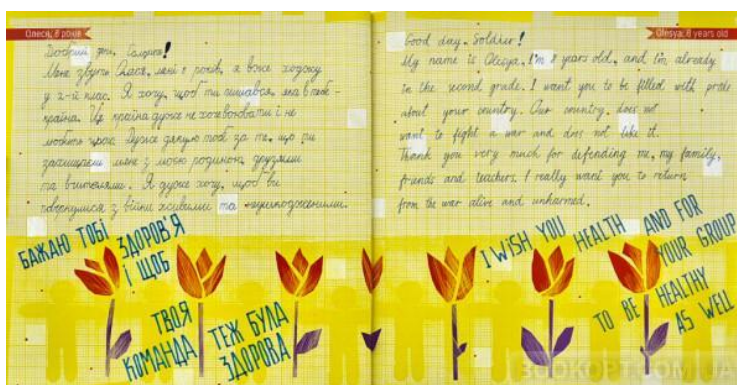 Олеся, 8 років
Добрий день, Солдате!
Мене звуть Олеся, мені 8 років, я вже ходжу
у 2-й клас. Я хочу, щоб ти пишався, яка в тебе
країна. Ця країна дуже не хоче воювати і не
любить цього. Дуже дякую тобі за те, що ти
захищаєш мене з моєю родиною, друзями
та вчителями. Я дуже хочу, щоб ви
повернулися з війни живими та неушкодженими.
БАЖАЮ ТОБІ
ЗДОРОВ'Я
І ЩОБ
ТВОЯ
КОМАНДА
ТЕЖ БУЛА
ЗДОРОВА
Olesya, 8 years old
Good day, Soldier!
My name is Olesya, I'm 8 years old, and I'm already
in the second grade. I want you to be filled with pride
about your country. Our country does not
want to fight a war and does not like it.
Thank you very much for defending me, my family,
friends and teachers. I really want you to return
from the war alive and unharmed.
I WISH YOU
HEALTH
AND FOR
YOUR GROUP
TO BE HEALTHY
AS WELL